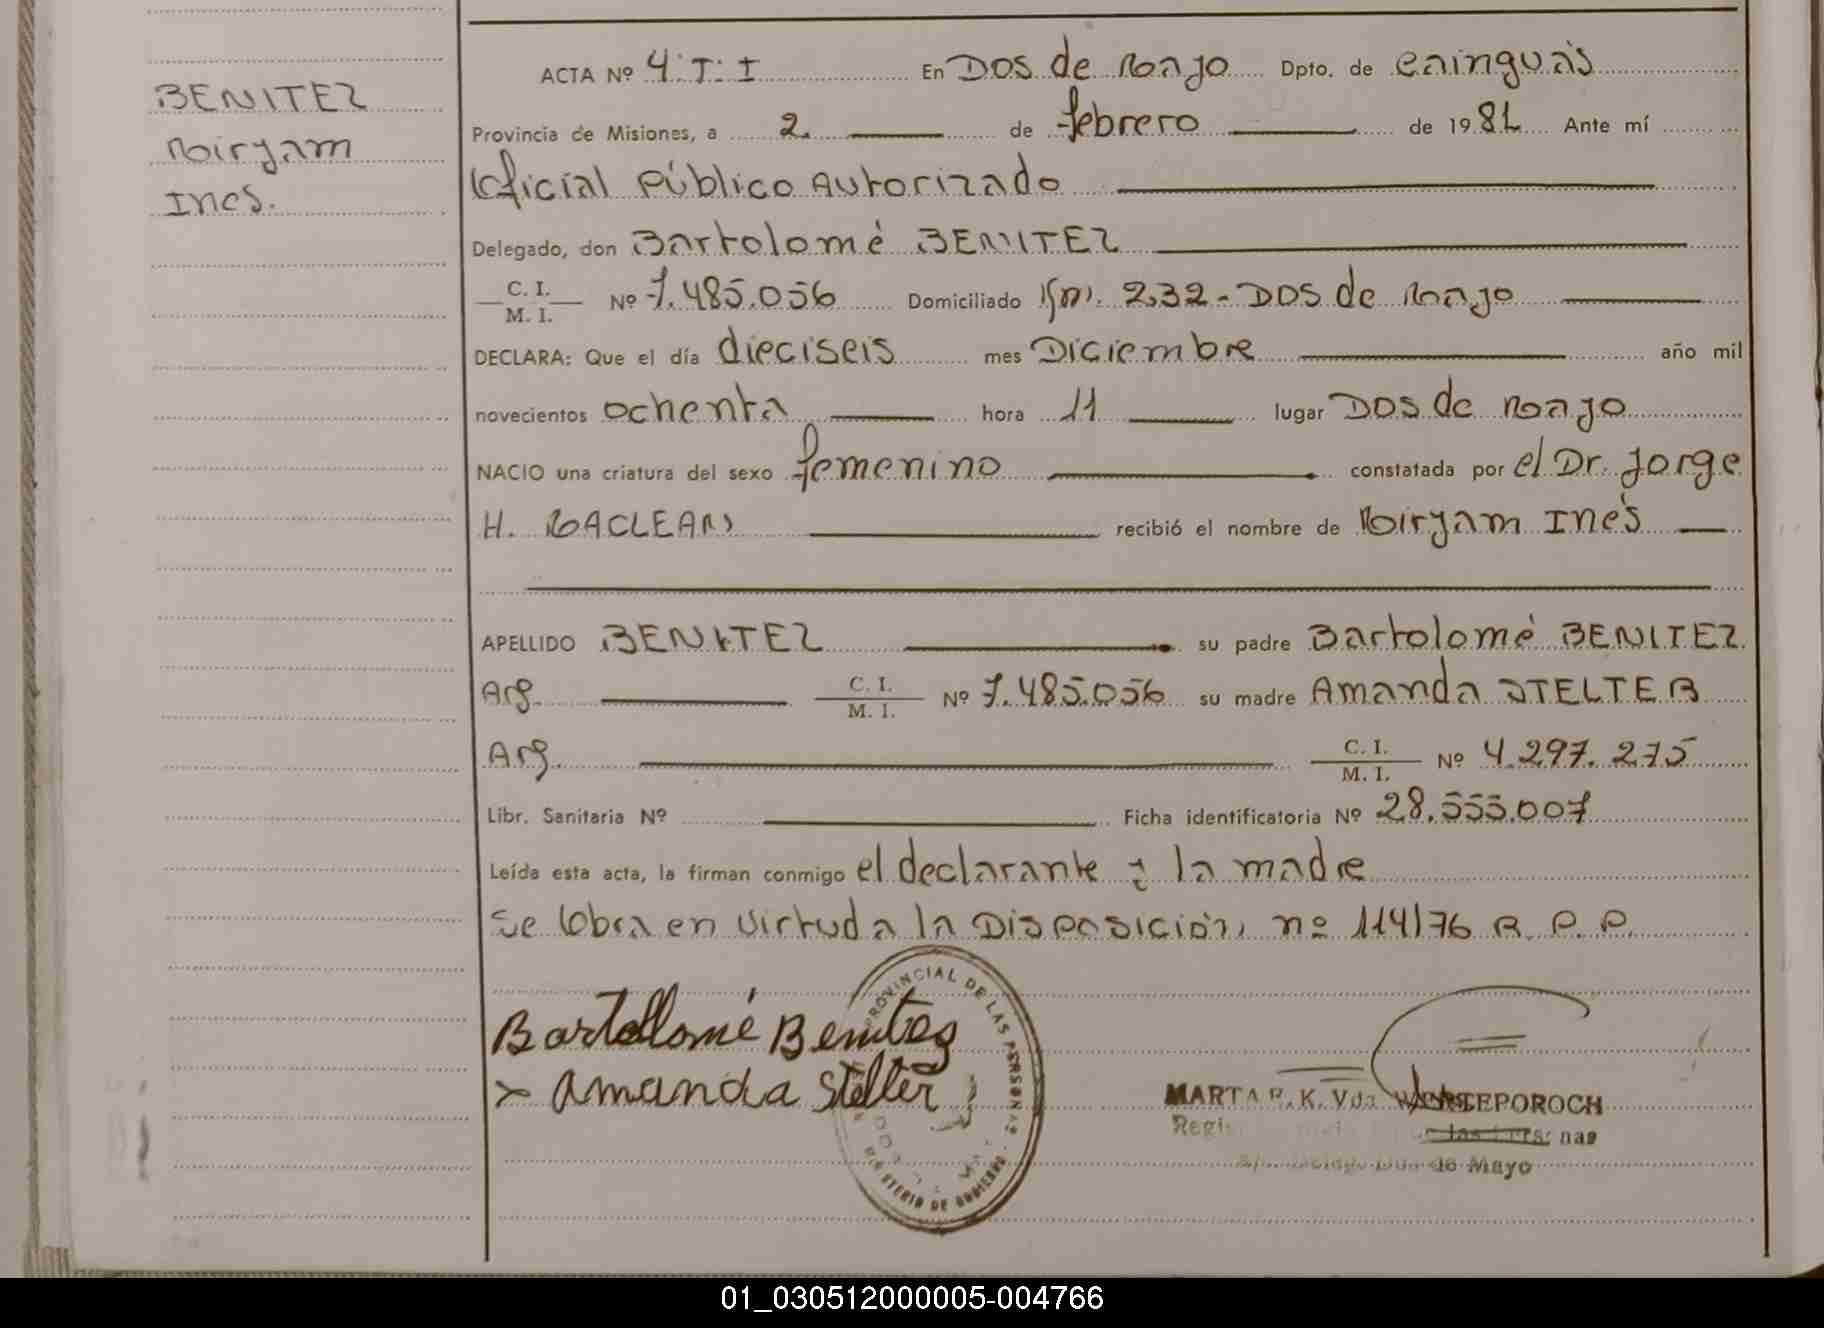 BENITEZ
Miryam
Ines.
ACTA Nº 4. T: I En Dos de Mayo Dpto. de Cainguás
Provincia de Misiones, a 2 de febrero de 1981 Ante mí
Oficial Público Autorizado
Delegado, don Bartolomé BENITEZ
C. I.
M. I. Nº 7.485.056 Domiciliado Km. 232 - Dos de Mayo
DECLARA: Que el día dieciseis mes Diciembre año mil
novecientos ochenta hora 11 lugar Dos de Mayo
NACIO una criatura del sexo femenino constatada por el Dr. Jorge
H. MACLEAN recibió el nombre de Miryam Inés
APELLIDO BENITEZ su padre Bartolomé BENITEZ
Arg. C. I.
M. I. Nº 7.485.056 su madre Amanda STELTER
Arg. C. I.
M. I. Nº 4.297.275
Libr. Sanitaria Nº Ficha identificatoria Nº 28.555.007
Leída esta acta, la firman conmigo el declarante y la madre
Se labra en virtud a la Disposición nº 114/76 R. P. P.
Bartolomé Benitez
x Amanda Stelter
PROVINCIAL DE LAS PERSONAS
MINISTERIO DE GOBIERNO
MARTA R. K. Vda
de Mayo
01_030512000005-004766